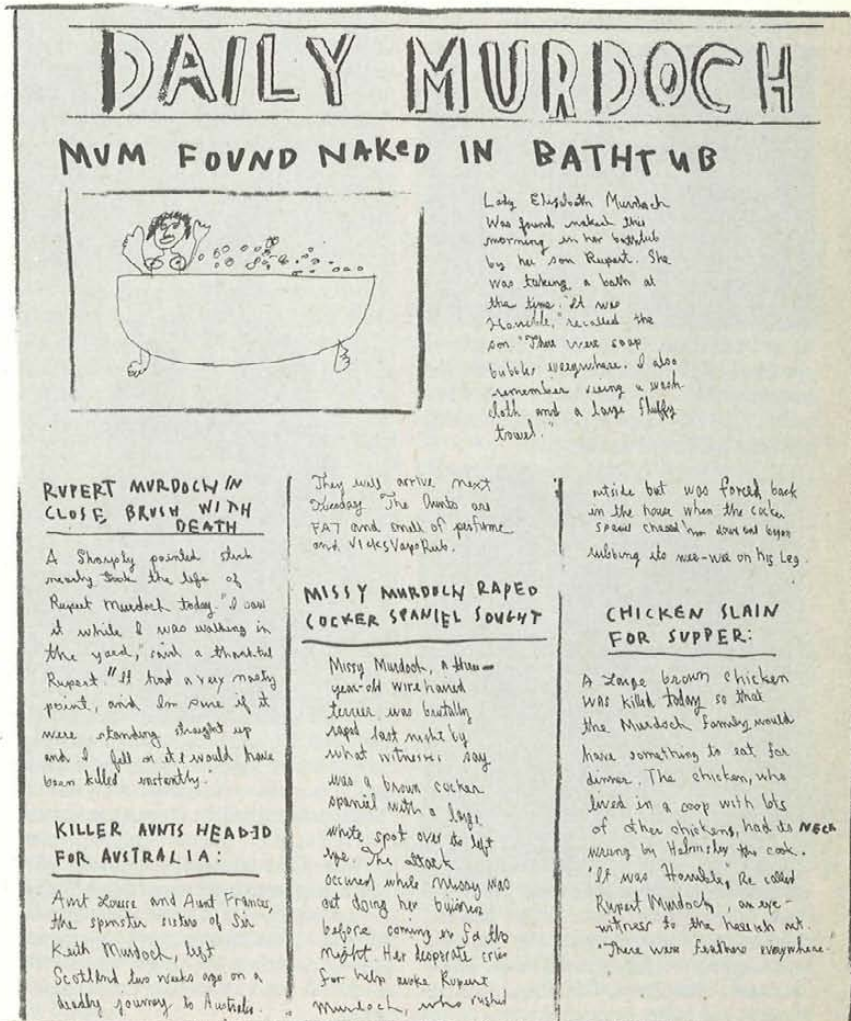 DAILY MURDOCH
MUM FOUND NAKED IN BATHTUB
Lady Elizabeth Murdoch
was found naked this
morning in her bathtub
by her son Rupert. She
was taking a bath at
the time. "It was
Horrible," recalled the
son. "There were soap
bubbles everywhere. I also
remember seeing a wash
cloth and a large fluffy
towel."
RUPERT MURDOCH IN
CLOSE BRUSH WITH
DEATH
A Sharply pointed stick
nearly took the life of
Rupert Murdoch today. "I saw
it while I was walking in
the yard," said a thankful
Rupert. "It had a very nasty
point, and I'm sure if it
were standing straight up
and I fell on it I would have
been killed instantly."
KILLER AUNTS HEADED
FOR AUSTRALIA:
Aunt Louise and Aunt Frances,
the spinster sisters of Sir
Keith Murdoch, left
Scotland two weeks ago on a
deadly journey to Australia.
They will arrive next
Tuesday. The Aunts are
FAT and smell of perfume
and Vicks VapoRub.
MISSY MURDOCH RAPED
COCKER SPANIEL SOUGHT
Missy Murdoch, a three-
year-old wirehaired
terrier was brutally
raped last night by
what witnesses say
was a brown cocker
spaniel with a large
white spot over its left
eye. The attack
occured while Missy was
out doing her business
before coming in for the
night. Her desperate cries
for help awoke Rupert
Murdoch, who rushed
outside but was forced back
in the house when the cocker
spaniel chased him down and began
rubbing its wee-wee on his leg.
CHICKEN SLAIN
FOR SUPPER:
A Large brown chicken
was killed today so that
the Murdoch family would
have something to eat for
dinner. The chicken, who
lived in a coop with lots
of other chickens, had its NECK
wrung by Helmsley the cook.
"It was Horrible," Re called
Rupert Murdoch, an eye-
witness to the heinish act.
"There were feathers everywhere."